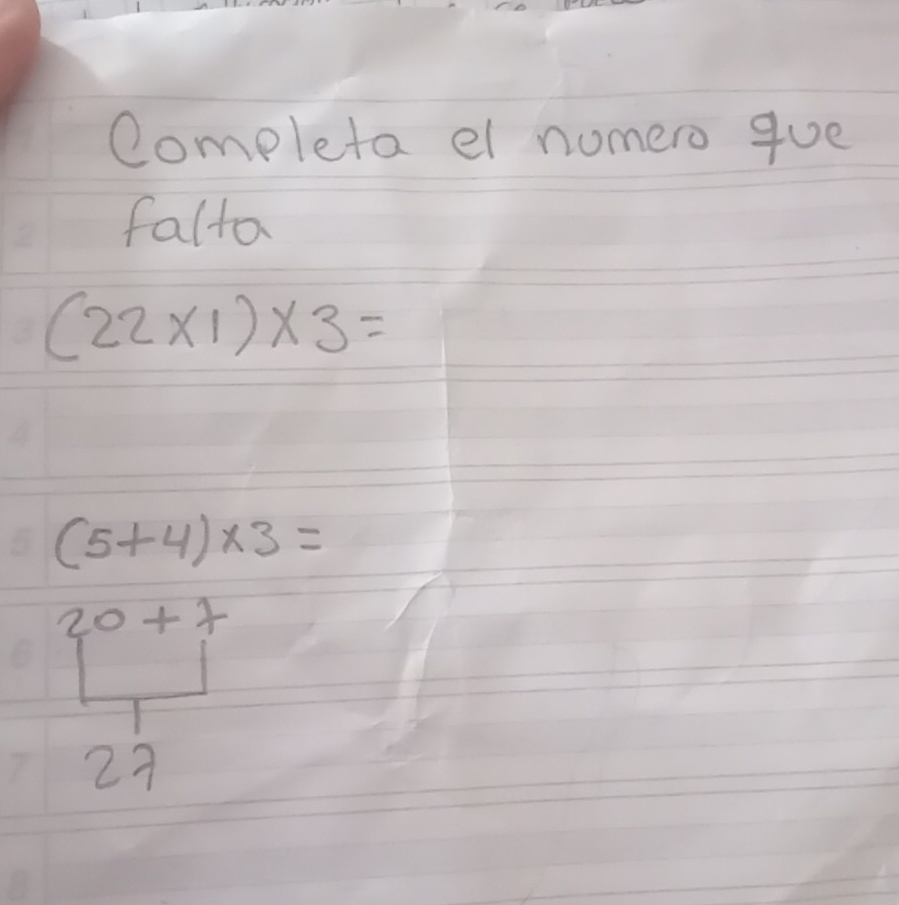 Completa el numero que
falta
(22x1)x3=
(5+4)x3=
20+7
27